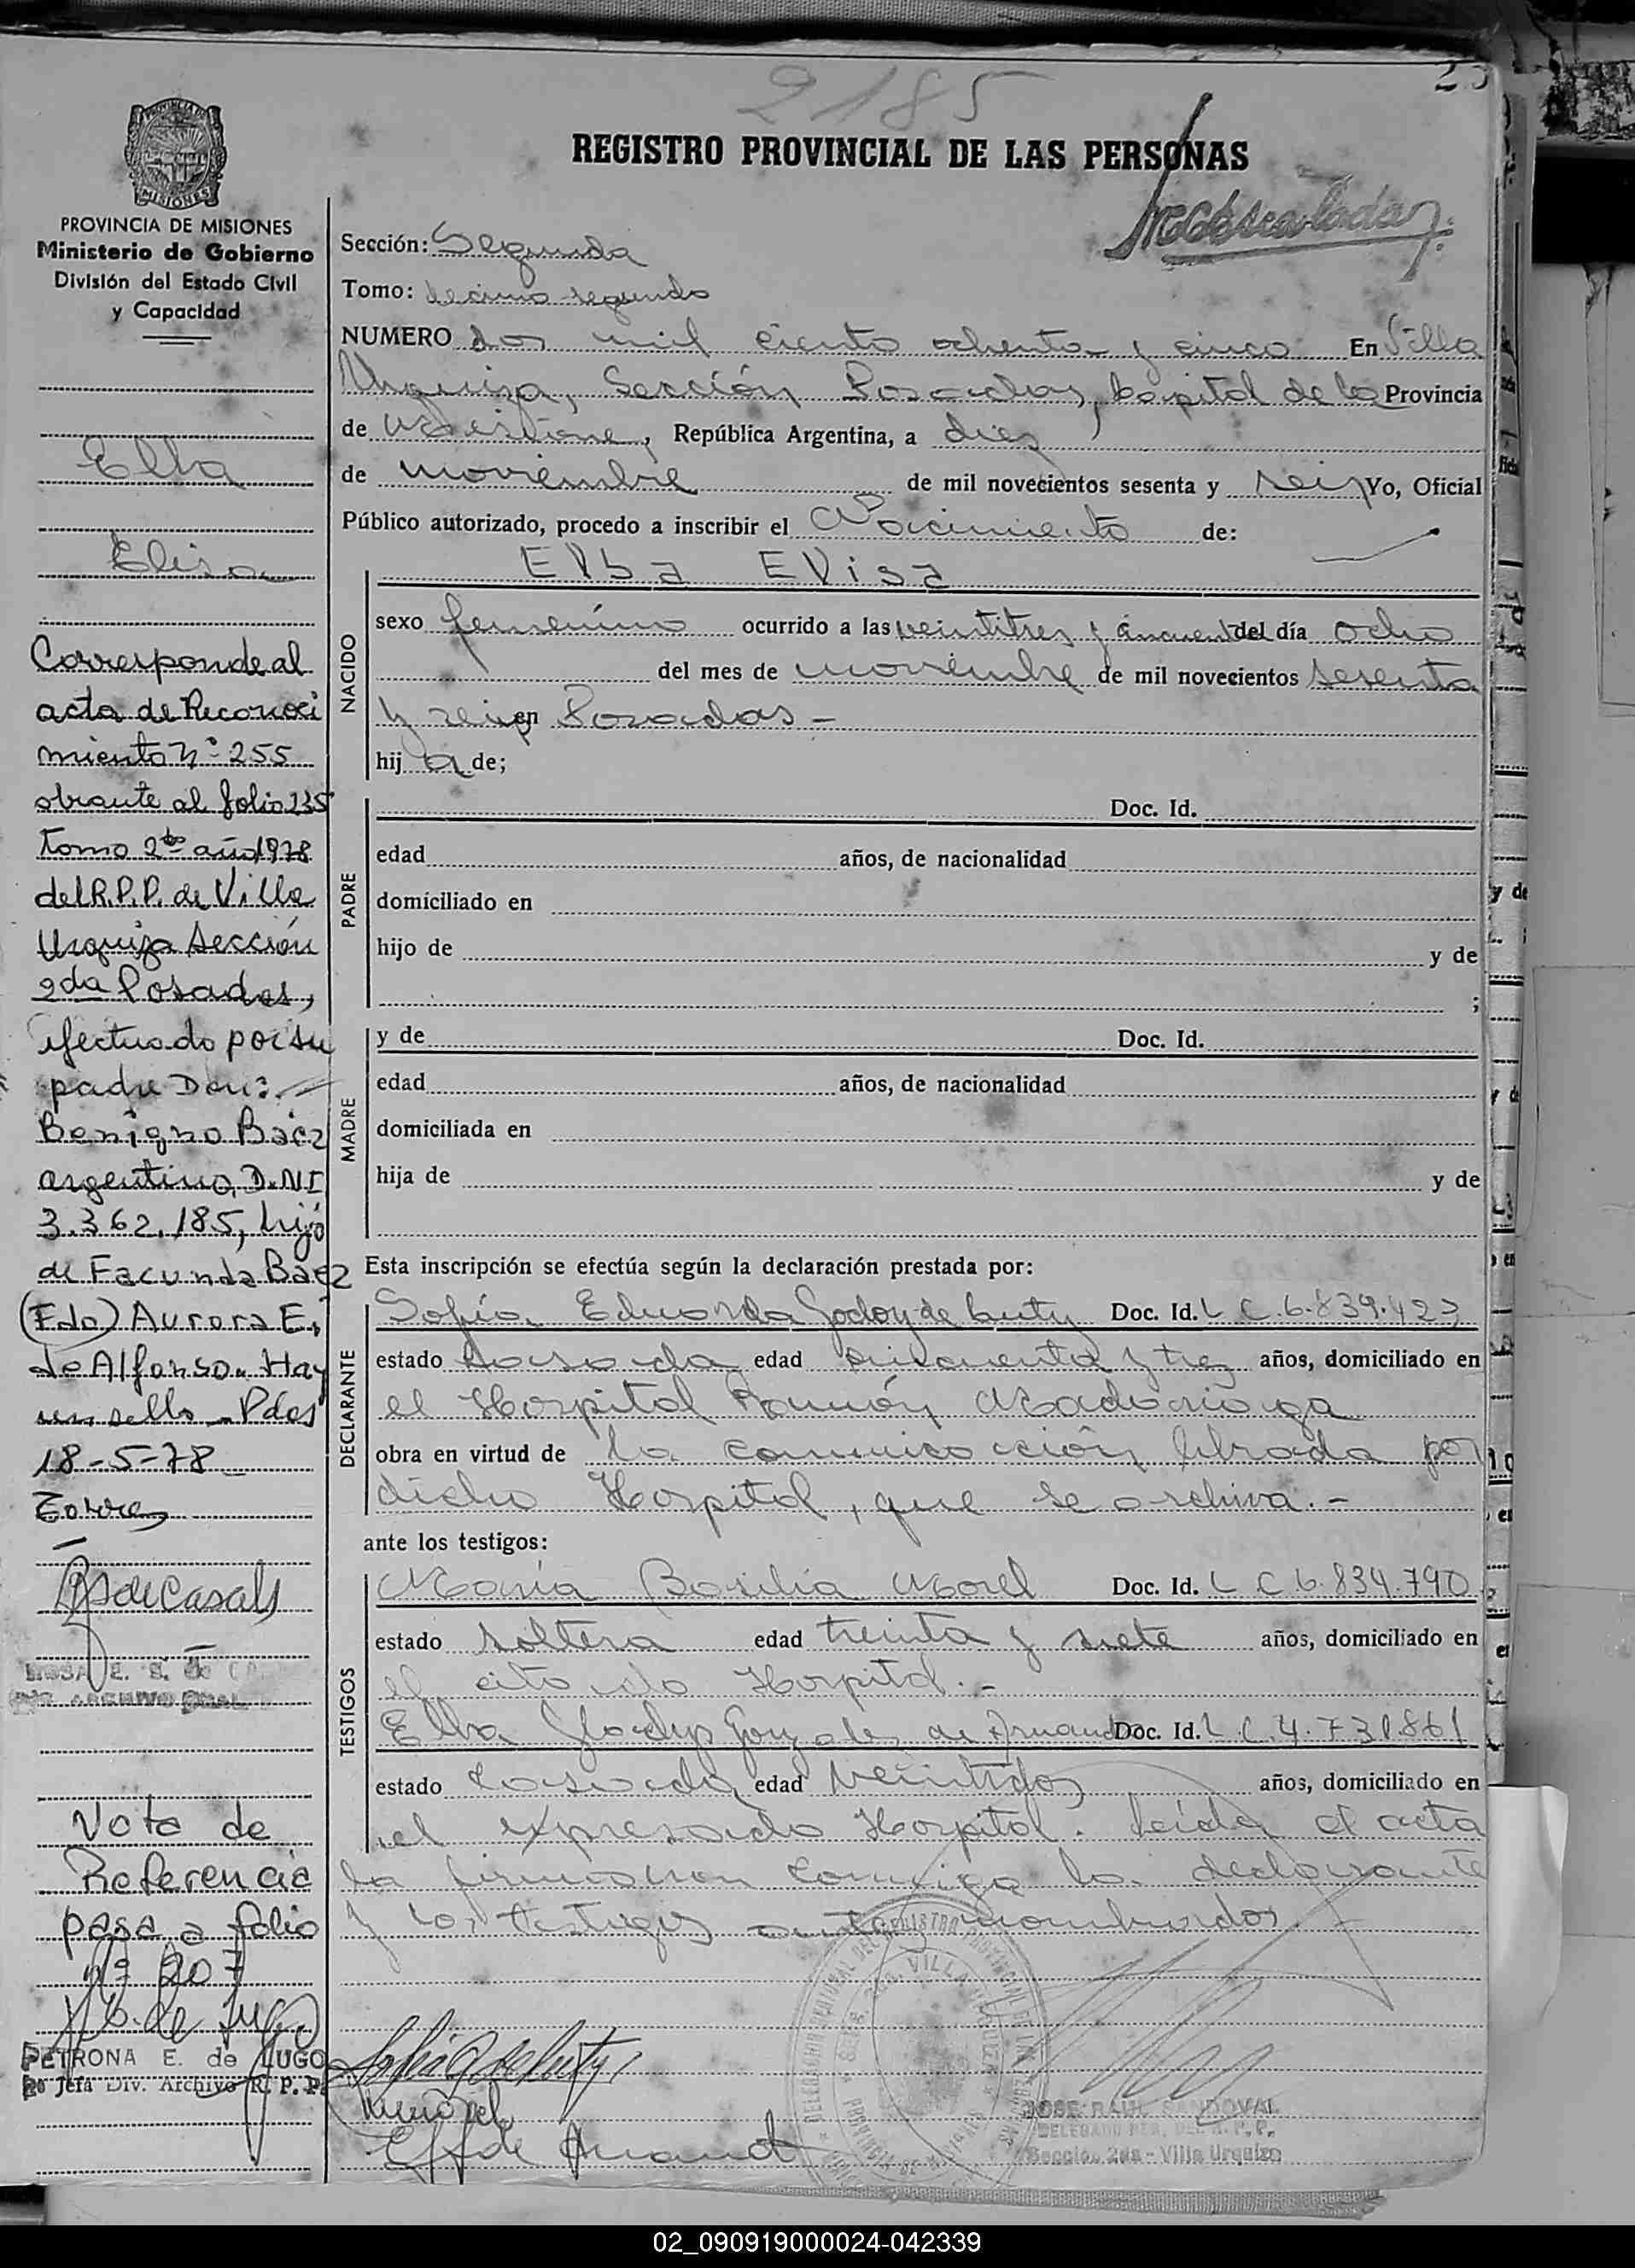 2185
REGISTRO PROVINCIAL DE LAS PERSONAS
PROVINCIA DE MISIONES
Ministerio de Gobierno
División del Estado Civil
y Capacidad
Elba
Elisa
Corresponde al
acta de Reconoci
miento Nº 255
obrante al folio 235
Tomo 2do año 1978
del R.P.P. de Villa
Urquiza Sección
2da Posadas,
efectuado por su
padre Don:
Benigno Báez
argentino, D.N.I
3.362.185, hijo
de Facunda Baez
(Fdo) Aurora E.
de Alfonso. Hay
un sello - Pdas
18-5-78
Torres
Nota de
Referencia
pasa a folio
nº 207
PETRONA E. de LUGO
Jefa Div. Archivo R. P. P.
Sección: Segunda
Tomo: décimo segundo
NUMERO dos mil ciento ochenta y cinco En Villa
Urquiza, Sección Posadas, Capital de la Provincia
de Misiones, República Argentina, a diez
de noviembre de mil novecientos sesenta y seis Yo, Oficial
Público autorizado, procedo a inscribir el Nacimiento de:
Elba Elisa
NACIDO
sexo femenino ocurrido a las veintitres y cincuenta del día ocho
del mes de noviembre de mil novecientos sesenta
y seis en Posadas -
hij a de;
PADRE
Doc. Id.
edad años, de nacionalidad
domiciliado en
hijo de y de
;
MADRE
y de Doc. Id.
edad años, de nacionalidad
domiciliada en
hija de y de
Esta inscripción se efectúa según la declaración prestada por:
DECLARANTE
Sofía Eduarda Godoy de Doc. Id. L C 6.839.423
estado casada edad cincuenta y tres años, domiciliado en
el Hospital Ramón Madariaga
obra en virtud de la comunicación librada por
dicho Hospital, que se archiva.-
ante los testigos:
TESTIGOS
María Basilia Morel Doc. Id. L C 6.834.790
estado soltera edad treinta y siete años, domiciliado en
el citado Hospital.-
Elba Gladys Gonzalez de Doc. Id. L C 4.731.861
estado casada edad veintidos años, domiciliado en
el expresado Hospital. Leída el acta
la firmaron conmigo la declarante
y los testigos antes nombrados.
JOSE RAUL SANDOVAL
Sección 2da - Villa Urquiza
02_090919000024-042339